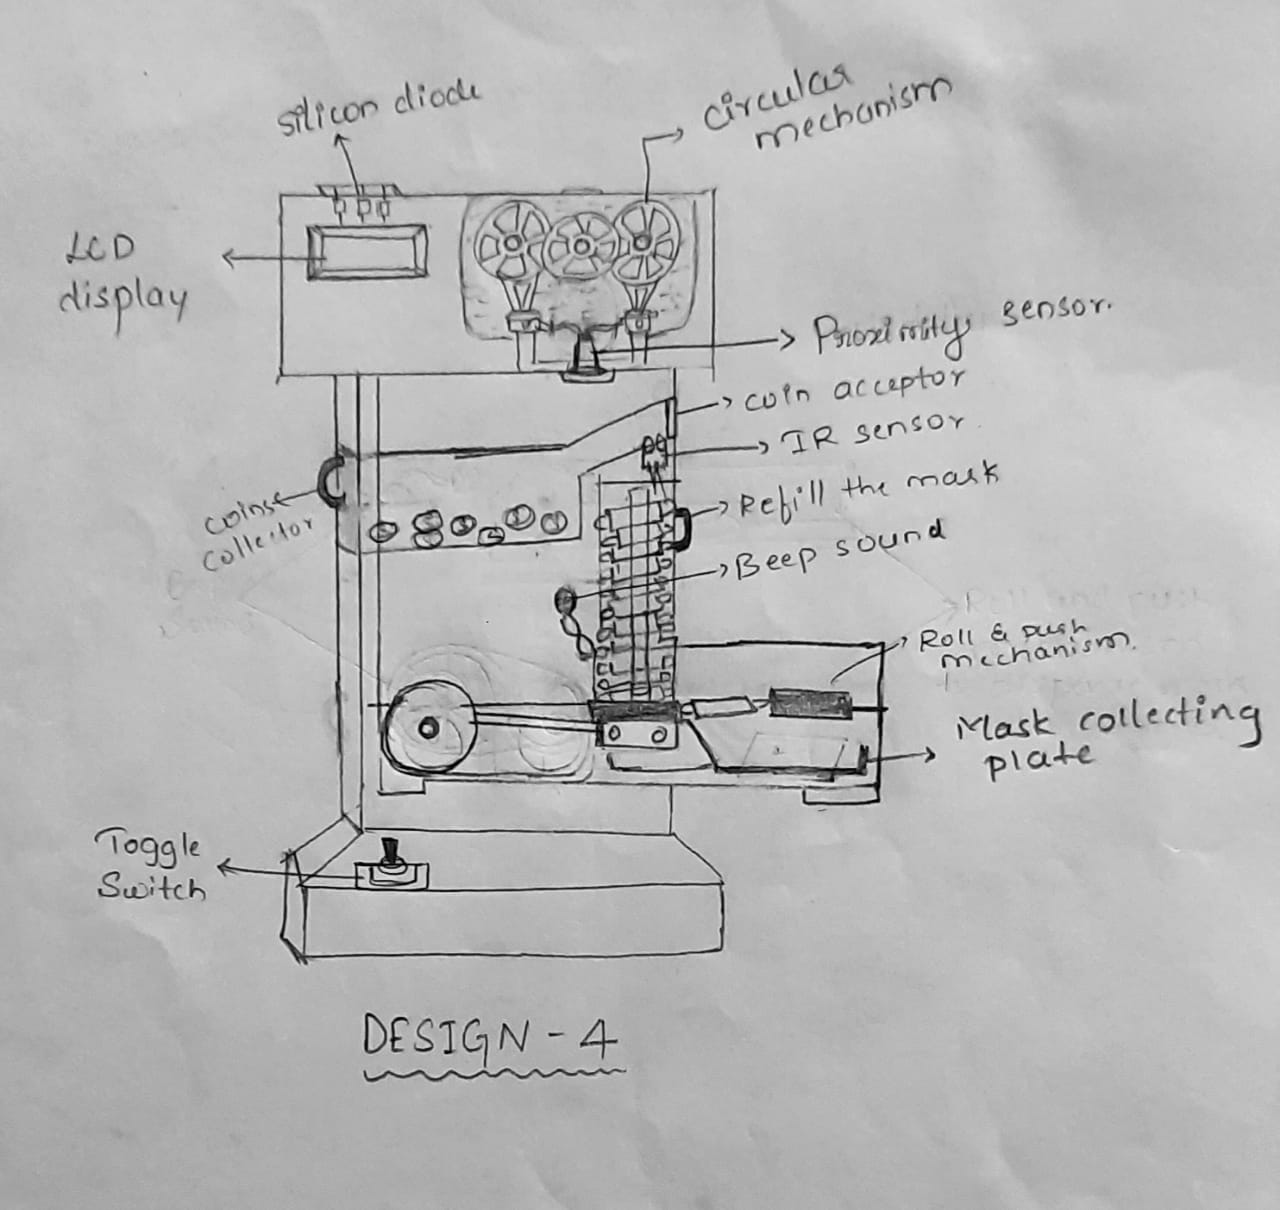 silicon diode
circular
mechanism
LCD
display
Proximity sensor.
coin acceptor
IR sensor
Refill the mask
coinse
collector
Beep sound
Roll & push
mechanism.
Mask collecting
plate
Toggle
Switch
DESIGN-4